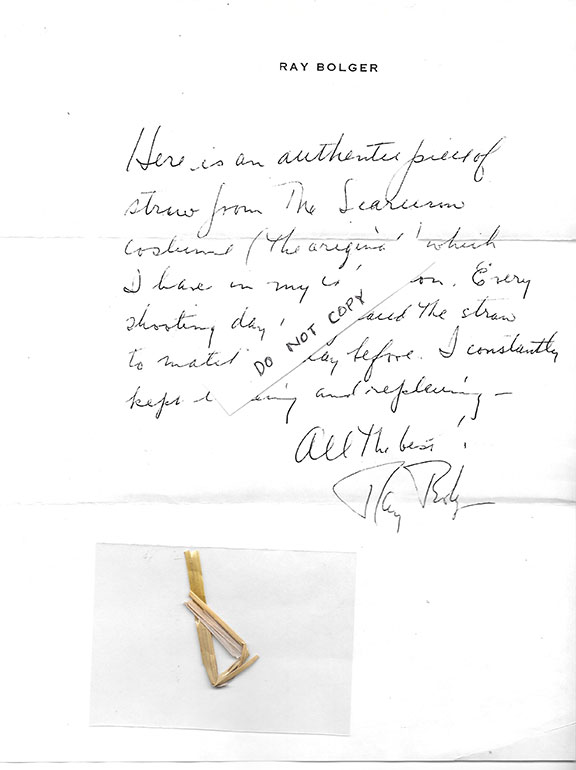 RAY BOLGER
Here is an authentic piece of
straw from The Scarecrow
costume (the original which
I have in my on. Every
shooting day the straw
to match day before. I constantly
kept and replacing –
All the best!
Ray Bolger
DO NOT COPY